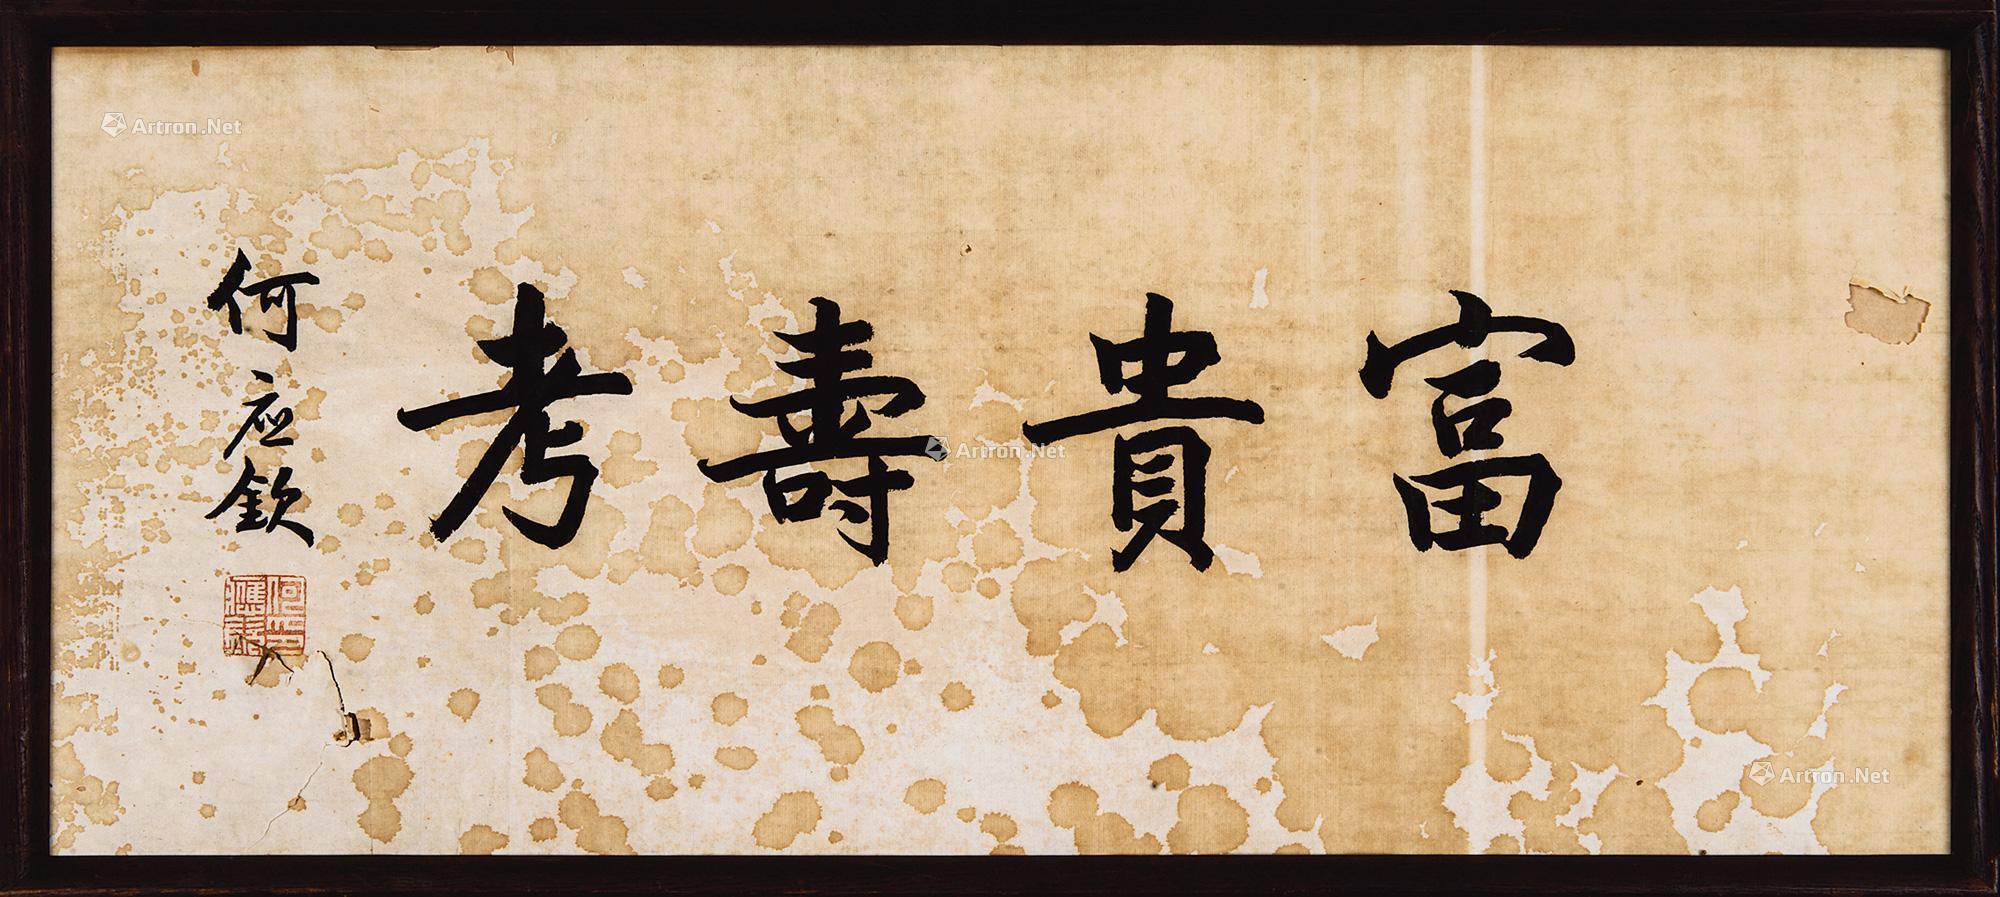 富貴壽考
何应欽
何應欽印
Artron.Net
Artron.Net
Artron.Net